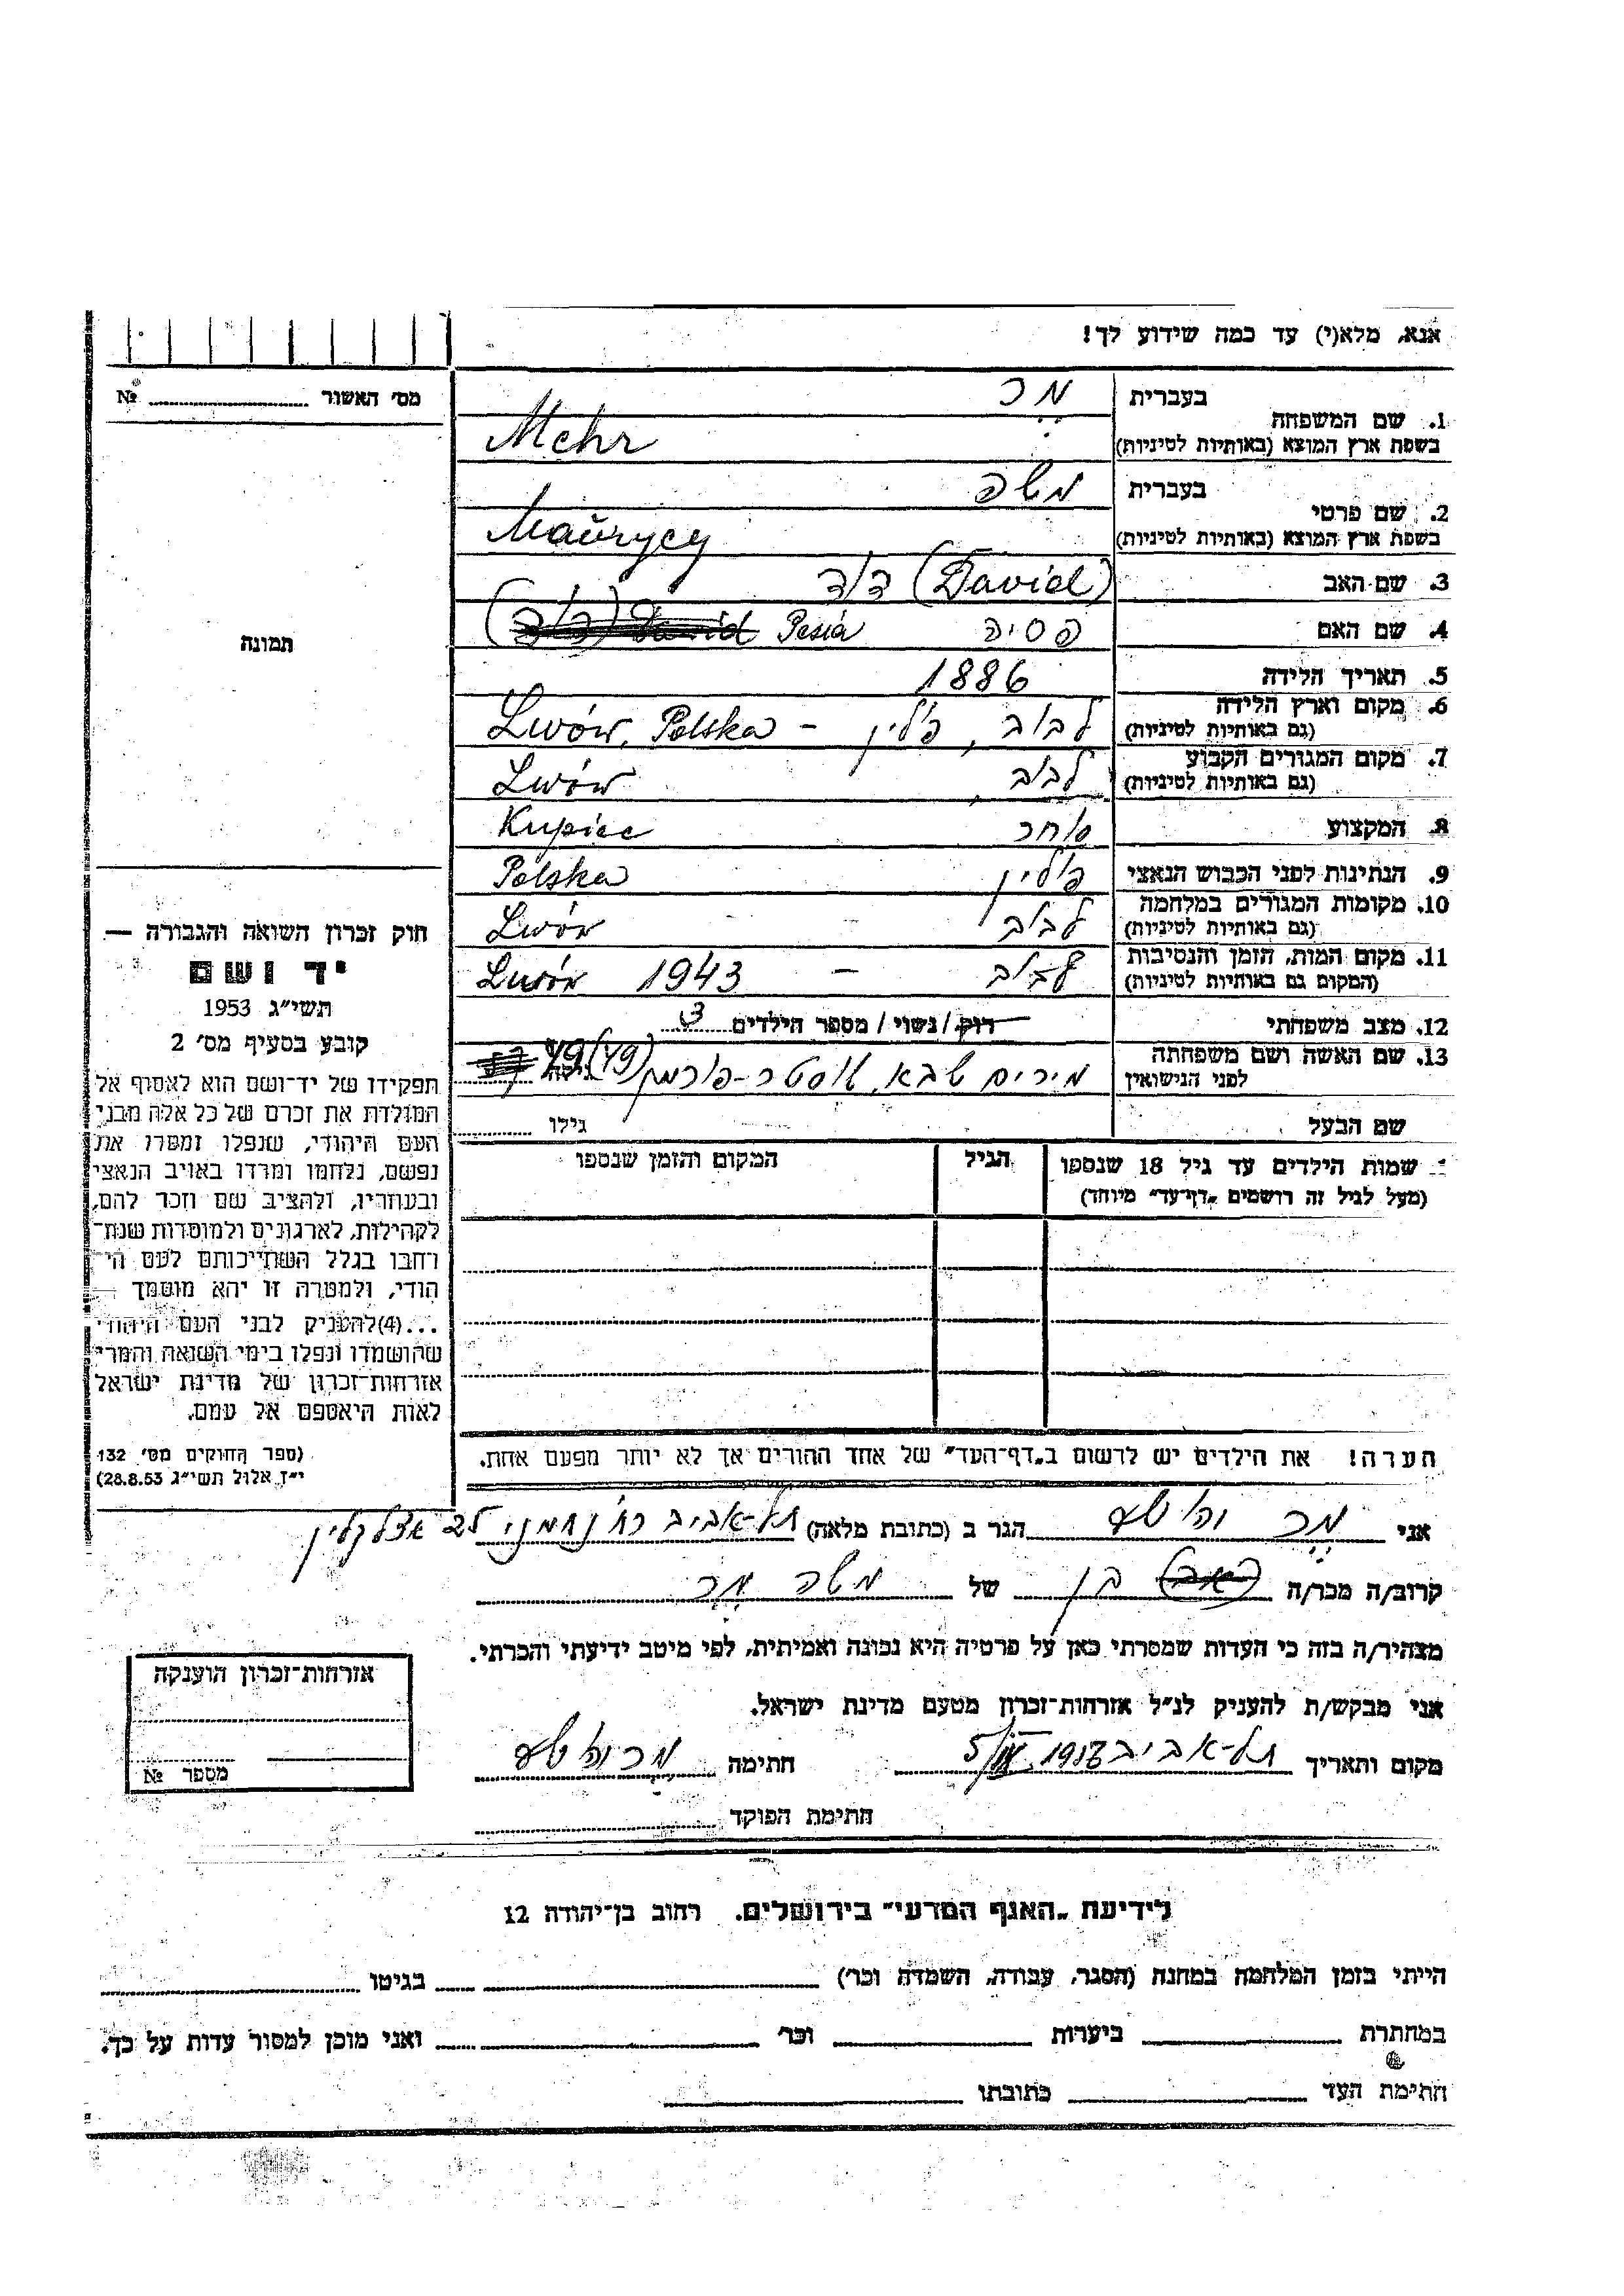 אנא, מלא(י) עד כמה שידוע לך!
מס׳ האשור № 
בעברית מר
1. שם המשפחה
בשפת ארץ המוצא (באותיות לטיניות) Mehr
בעברית משה
2. שם פרטי
בשפת ארץ המוצא (באותיות לטיניות) Maurycy
3. שם האב (David) דוד
4. שם האם פסיה Pesia
5. תאריך הלידה 1886
6. מקום וארץ הלידה
(גם באותיות לטיניות) לבוב, פולין - Lwów, Polska
7. מקום המגורים הקבוע
(גם באותיות לטיניות) לבוב, Lwów
8. המקצוע סוחר Kupiec
9. הנתינות לפני הכבוש הנאצי פולין Polska
10. מקומות המגורים במלחמה
(גם באותיות לטיניות) לבוב - - Lwów
11. מקום המות, הזמן והנסיבות
(המקום גם באותיות לטיניות) לבוב - 1943 Lwów
12. מצב משפחתי רוק/נשוי/ מספר הילדים 3
13. שם האשה ושם משפחתה
לפני הנישואין מירים שבא (49) 49
שם הבעל גילו
תמונה
חוק זכרון השואה והגבורה —
יד ושם
תשי״ג 1953
קובע בסעיף מס׳ 2
תפקידו של יד־ושם הוא לאסוף אל
המולדת את זכרם של כל אלה מבני
העם היהודי, שנפלו ומסרו את
נפשם, נלחמו ומרדו באויב הנאצי
ובעוזריו, ולהציב שם וזכר להם,
לקהילות, לארגונים ולמוסדות שנח־
רחבו בגלל השתייכותם לעם הי־
הודי, ולמטרה זו יהא מוסמך —
...(4)להעניק לבני העם היהודי
שהושמדו ונפלו בימי השואה והמרי
אזרחות־זכרון של מדינת ישראל
לאות היאספם אל עמם.
(ספר החוקים מס׳ 132
י״ז אלול תשי״ג 28.8.53)
שמות הילדים עד גיל 18 שנספו הגיל המקום והזמן שנספו
(מעל לגיל זה רושמים „דף־עד״ מיוחד)
הערה! את הילדים יש לרשום ב„דף־העד״ של אחד ההורים אך לא יותר מפעם אחת.
אני מר הגר ב (כתובת מלאה) תל-אביב רח׳ נחמני אצל קליין
קרוב/ה מכר/ה בן של משה מר
מצהיר/ה בזה כי העדות שמסרתי כאן על פרטיה היא נכונה ואמיתית, לפי מיטב ידיעתי והכרתי.
אני מבקש/ת להעניק לנ״ל אזרחות־זכרון מטעם מדינת ישראל.
מקום ותאריך תל-אביב חתימה מר
חתימת הפוקד
אזרחות־זכרון הוענקה
מספר №
לידיעת „האגף המדעי״ בירושלים. רחוב בן־יהודה 12
הייתי בזמן המלחמה במחנה (הסגר, עבודה, השמדה וכו׳) בגיטו
במחתרת ביערות וכו׳ ואני מוכן למסור עדות על כך.
חתימת העד כתובתו